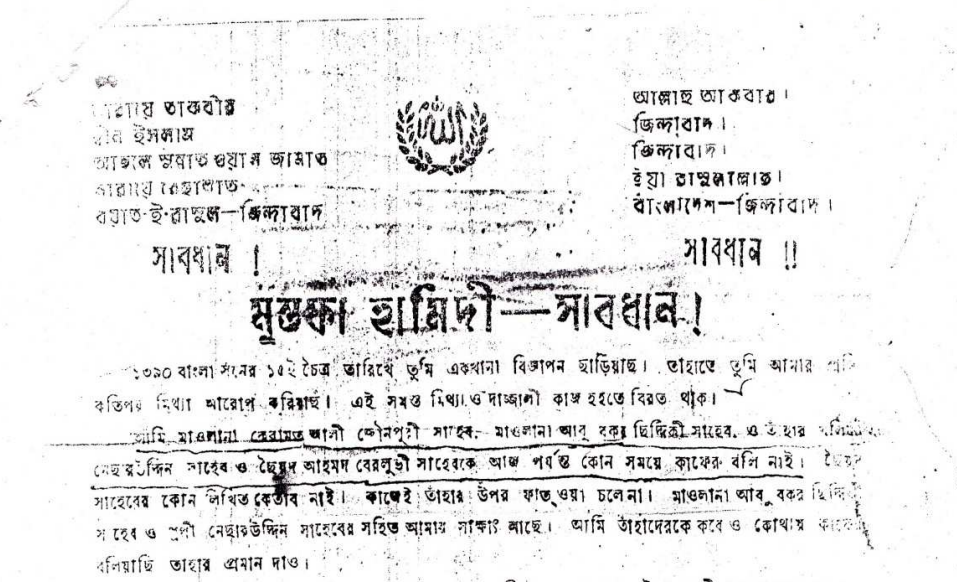 তাকবীর
ইসলাম
আহলে সুন্নাত ওয়াল জামাত
নারায়ে রেছালাত
ই-রাসুল—জিন্দাবাদ
আল্লাহু আকবার।
জিন্দাবাদ।
জিন্দাবাদ।
ইয়া রাসুলাল্লাহ।
বাংলাদেশ—জিন্দাবাদ।
সাবধান !
সাবধান !!
মুস্তফা হামিদী—সাবধান!
১৩৯০ বাংলা সনের ১৫ই চৈত্র তারিখে তুমি একখানা বিজ্ঞাপন ছাড়িয়াছ। তাহাতে তুমি আমার প্রতি
কতিপয় মিথ্যা আরোপ করিয়াছ। এই সমস্ত মিথ্যা ও দাজ্জালী কাজ হইতে বিরত থাক।
আমি মাওলানা কেরামত আলী জৌনপুরী সাহেব, মাওলানা আবু বকর ছিদ্দিকী সাহেব, ও তাহার
নেছারউদ্দিন সাহেব ও ছৈয়দ আহমদ বেরলুভী সাহেবকে আজ পর্যন্ত কোন সময়ে কাফের বলি নাই। ছৈয়দ
সাহেবের কোন লিখিত কেতাব নাই। কাজেই তাঁহার উপর ফাতওয়া চলেনা। মাওলানা আবু বকর ছিদ্দিকী
সাহেব ও সুফী নেছারউদ্দিন সাহেবের সহিত আমার সাক্ষাৎ আছে। আমি তাঁহাদেরকে কবে ও কোথায় কাফের
বলিয়াছি তাহার প্রমান দাও।